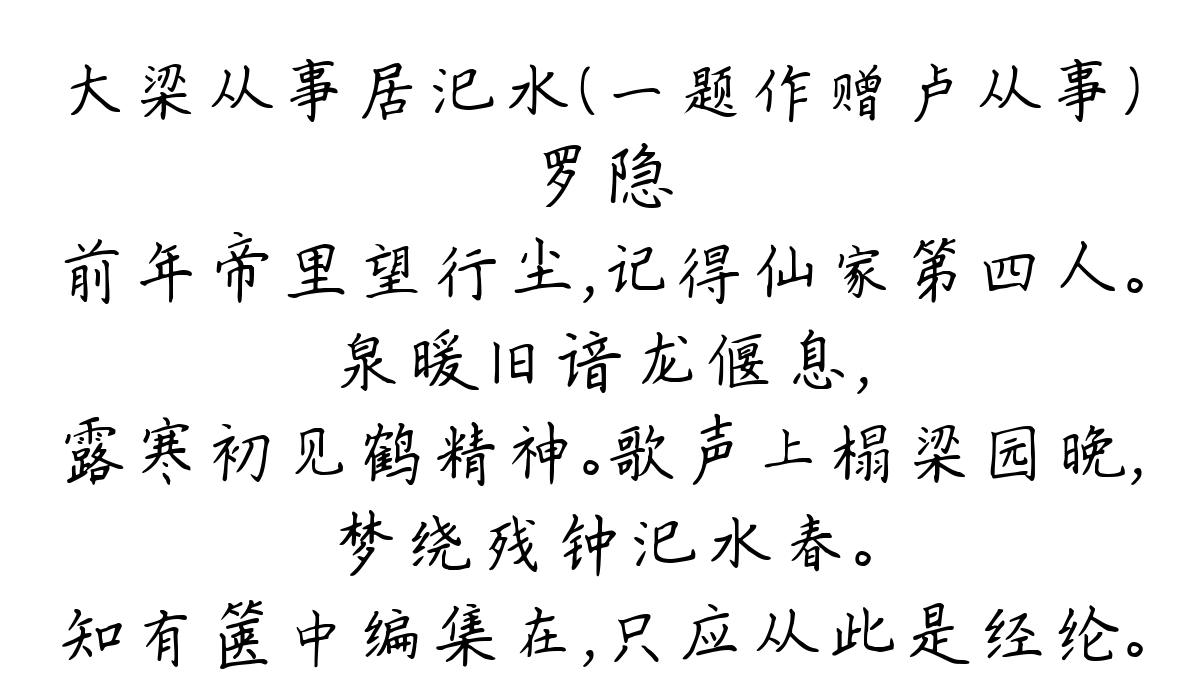 大梁从事居汜水(一题作赠卢从事)
罗隐
前年帝里望行尘,记得仙家第四人。
泉暖旧谙龙偃息,
露寒初见鹤精神。歌声上榻梁园晚,
梦绕残钟汜水春。
知有箧中编集在,只应从此是经纶。